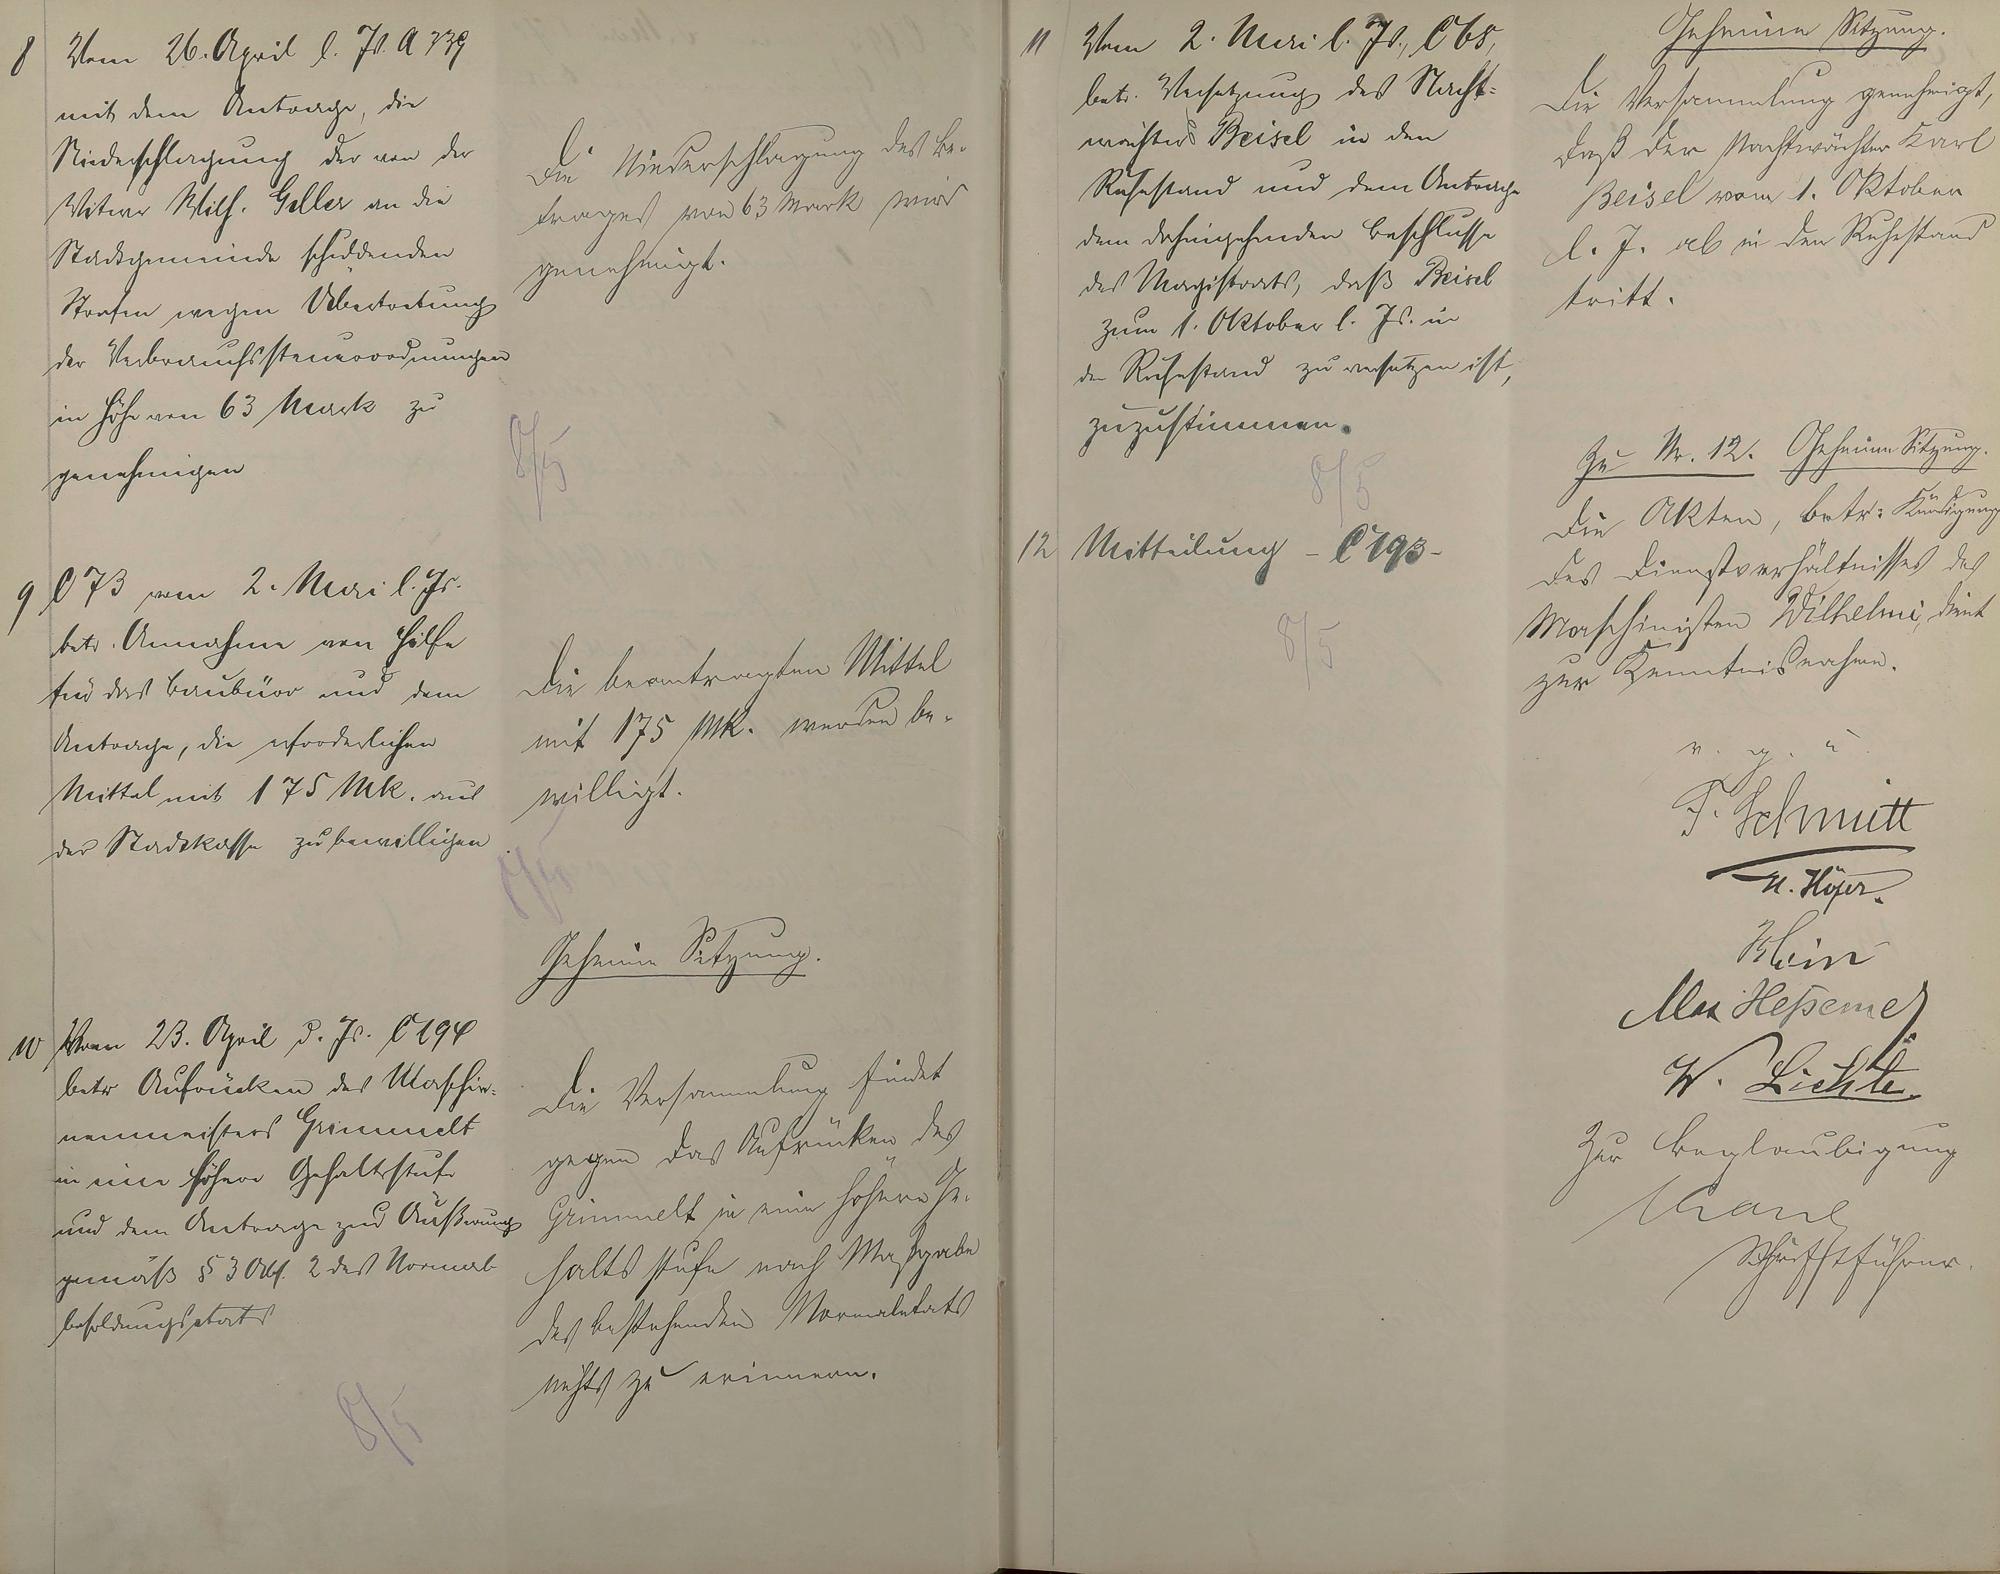 8 Vom 26. April l. Js. A 739
mit dem Antrage, die
Niederschlagung der von der
Witwe Wilh. Geller an die
Stadtgemeinde schuldenden
Strafen wegen Übertretung
der Verbrauchssteuerordnungen
in Höhe von 63 Mark zu
genehmigen
Die Niederschlagung des Be-
trages von 63 Mark wird
genehmigt.
8/5
9 C 73 vom 2. Mai l. Js.
betr. Annahme von Hilfe
für das Baubüro und dem
Antrage, die erforderlichen
Mittel mit 175 Mk. aus
der Stadtkasse zu bewilligen
Die beantragten Mittel
mit 175 Mk. werden be-
willigt.
8/5
Geheime Sitzung.
10 Vom 23. April d. Js. C 194
betr Aufrücken des Maschin-
nenmeisters Grimmelt
in eine höhere Gehaltsstufe
und dem Antrage zur Äußerung
gemäß § 3 Abs. 2 des Normal-
besoldungsetats
Die Versammlung findet
gegen das Aufrücken des
Grimmelt in eine höhere Ge-
haltsstufe nach Maßgabe
des bestehenden Normaletats
nichts zu erinnern.
8/5
11 Vom 2. Mai l. Js., C 68,
betr. Versetzung des Nacht-
wächters Beisel in den
Ruhestand und dem Antrage
dem dahingehenden Beschlusse
des Magistrats, daß Beisel
zum 1. Oktober l. Js. in
den Ruhestand zu versetzen ist,
zuzustimmen.
8/5
Geheime Sitzung.
Die Versammlung genehmigt,
daß der Nachtwächter Karl
Beisel vom 1. Oktober
l. J. ab in den Ruhestand
tritt.
12 Mitteilung - C 193 -
8/5
Zu Nr. 12. Geheime Sitzung.
Die Akten, betr: Kündigung
des Dienstverhältnisses des
Maschinisten Wilhelmi, dient
zur Kenntnisnahme.
v. g. u.
F. Schmitt
N. Höfer.
Klein
Max Hessemer
W. Lichte.
Zur Beglaubigung
Schriftführer.